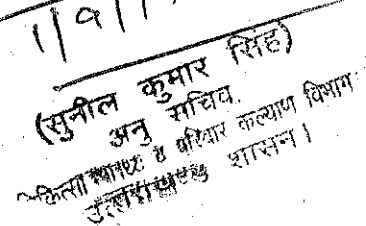 (सुनील कुमार सिंह)
अनु सचिव
चिकित्सा स्वास्थ्य एवं परिवार कल्याण विभाग
शासन।